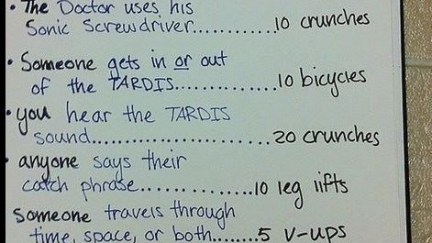 • The Doctor uses his
Sonic Screwdriver............10 crunches
• Someone gets in or out
of the TARDIS...............10 bicycles
• you hear the TARDIS
sound.........................20 crunches
• anyone says their
catch phrase..............10 leg lifts
Someone travels through
time, space, or both........5 V-ups